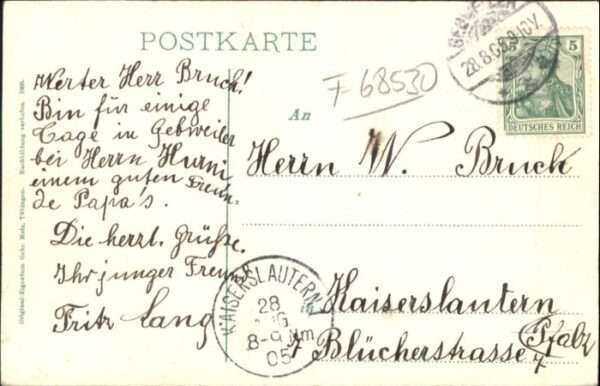 POSTKARTE
Werter Herr Bruch!
Bin für einige
Tage in Gebweiler
bei Herrn Hurni
einem guten Freun-
de Papa's.
Die herzl. Grüsse.
Ihr junger Freund
Fritz Lang
F 68530
An
Herrn W. Bruch
Kaiserslautern
Pfalz
Blücherstrasse 7
28.8.05
5 5
DEUTSCHES REICH
KAISERSLAUTERN
28
AUG
8-9 Nm
05
Original-Eigentum Gebr. Metz, Tübingen. Nachbildung verboten. 1905.